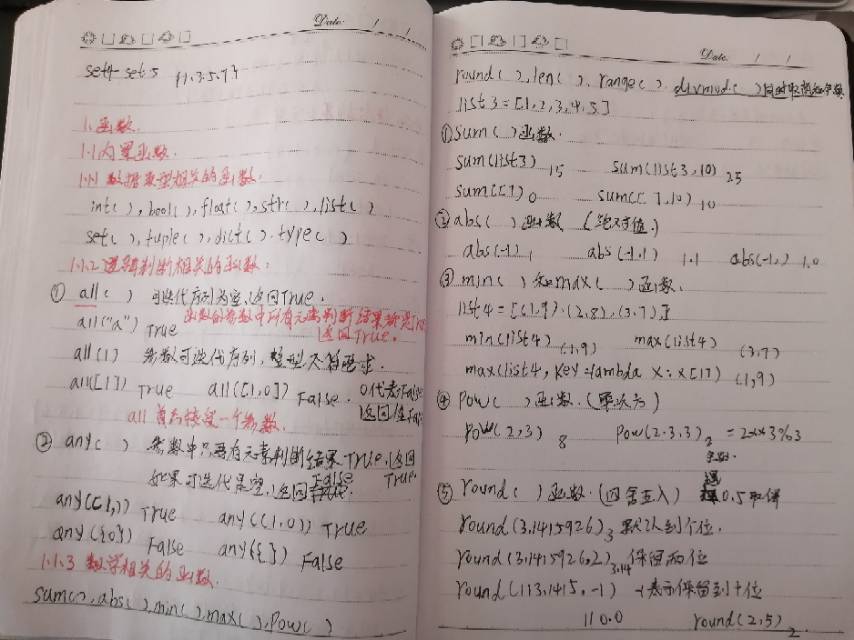 Date. / /
set4 - set5 {1.3.5.7}
1.函数.
1.1内置函数.
1.1.1 数据类型相关的函数.
int( ), bool( ), float( ), str( ), list( )
set( ), tuple( ), dict( ). type( )
1.1.2逻辑判断相关的函数.
① all( ) 可迭代序列为空,返回True.
函数的参数中所有元素判断结果都是
返回True.
all("a") True
all(1) 参数可迭代序列,整型不符要求.
all([1]) True all([1,0]) False. 0代表False
返回值
all 首先接受一个参数.
② any( ) 参数中只要有元素判断结果True,返回
True.
如果可迭代是空,返回 False
any([1,]) True any((1,0)) True
any({0}) False any({}) False
1.1.3 数学相关的函数.
sum( ), abs( ), min( ), max( ), Pow( )
Date. / /
round( ), len( ). range( ). divmod( ) 同时取
list3=[1,2,3,4,5]
①sum( )函数.
sum(list3) 15 sum(list3,10) 25
sum([]) 0 sum([ ],10) 10
②abs( )函数 (绝对值.)
abs(-1) 1 abs(-1.1) 1.1 abs(-1.) 1.0
③ min( )和max( )函数.
list4=[(1,9).(2,8),(3,7)]
min(list4) (1,9) max(list4) (3,7)
max(list4, key=lambda x:x[1]) (1,9)
④ Pow( )函数.(幂次方)
Pow(2,3) 8 Pow(2.3,3) 2 = 2**3%3
⑤ round( )函数.(四舍五入) 遇0.5取偶
round(3.1415926) 3 默认到个位.
round(3.1415926,2) 3.14 保留两位
round(113.1415,-1) -1表示保留到十位
110.0 round(2.5) 2.